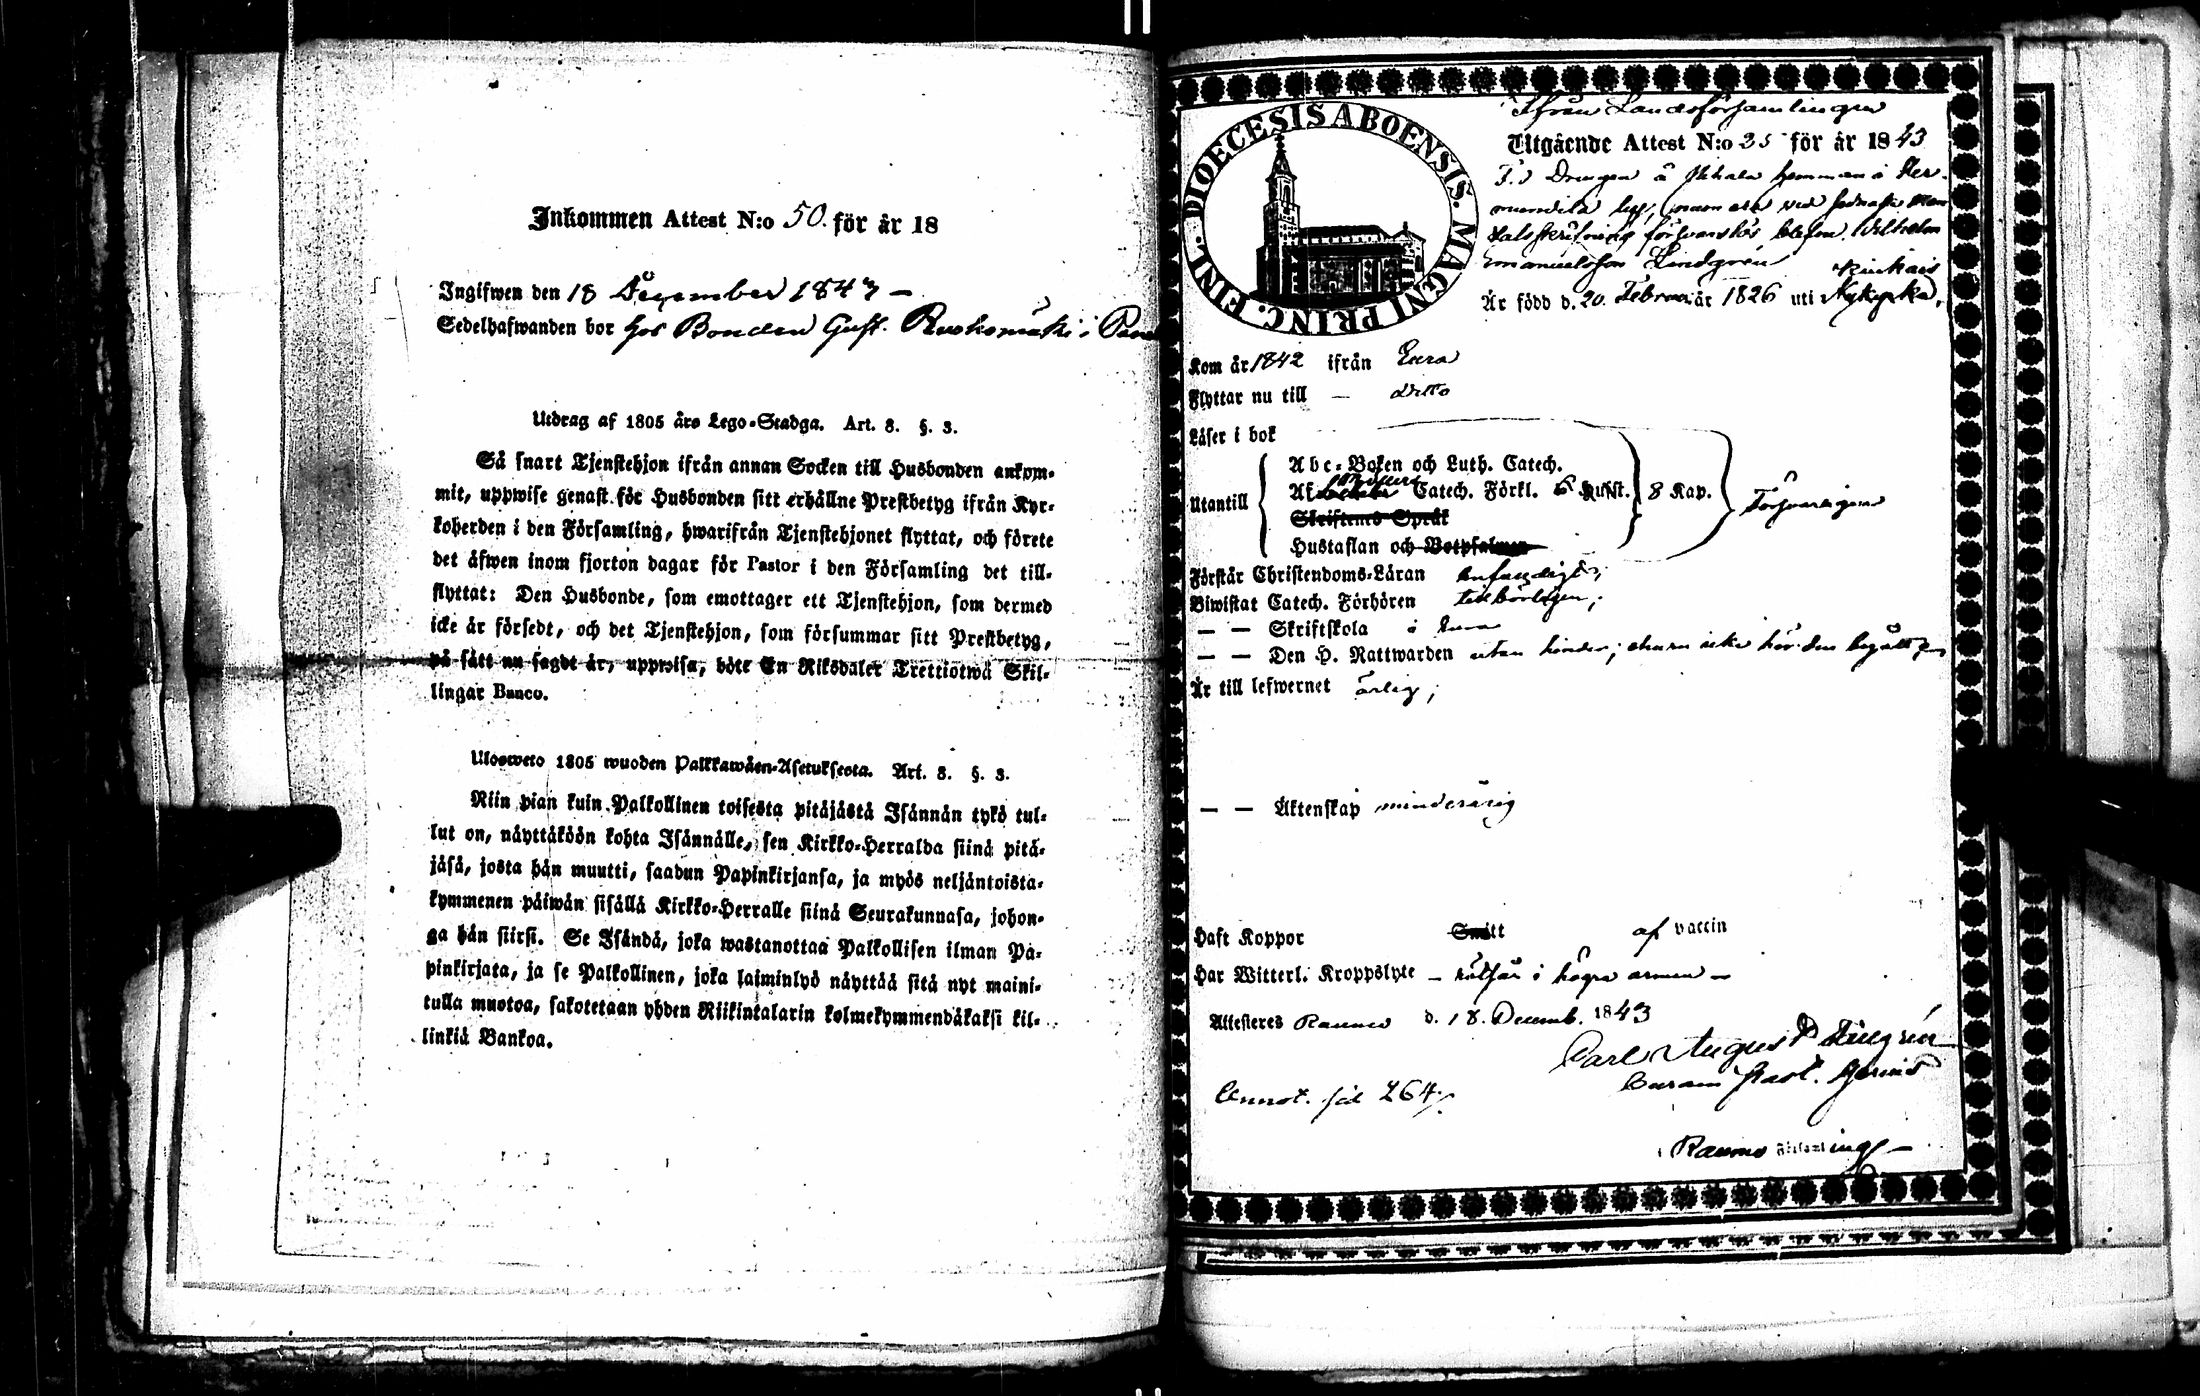 Inkommen Attest N:o 50. för år 18
Ingifwen den 18 December 1843 —
Sedelhafwanden bor hos Bonden Gust. Ruohomäki i
Utdrag af 1805 års Lego-Stadga. Art. 8. §. 3.
Så snart Tjenstehjon ifrån annan Socken till Husbonden ankom-
mit, uppwise genast för Husbonden sitt erhållne Prestbetyg ifrån Kyr-
koherden i den Församling, hwarifrån Tjenstehjonet flyttat, och förete
det äfwen inom fjorton dagar för Pastor i den Församling det till-
flyttat: Den Husbonde, som emottager ett Tjenstehjon, som dermed
icke är försedt, och det Tjenstehjon, som försummar sitt Prestbetyg,
på sätt nu sagdt är, uppwisa, böte En Riksdaler Trettiotwå Skil-
lingar Banco.
Ulosweto 1805 wuoden Palkkawäen-Asetuksesta. Art. 8. §. 3.
Niin pian kuin Palkollinen toisesta pitäjästä Isännän tykö tul-
lut on, näyttäköön kohta Isännälle, sen Kirkko-Herralda siinä pitä-
jäsä, josta hän muutti, saadun Papinkirjansa, ja myös neljäntoista-
kymmenen päiwän sisällä Kirkko-Herralle siinä Seurakunnasa, johon-
ga hän siirsi. Se Isändä, joka wastanottaa Palkollisen ilman Pa-
pinkirjata, ja se Palkollinen, joka laiminlyö näyttää sitä nyt maini-
tulla muotoa, sakotetaan yhden Riikintalarin kolmekymmendäkaksi kil-
linkiä Bankoa.
DIOECESIS ABOENSIS. MAGNI PRINC. FINL.
Ifrån Landsförsamlingen
Utgående Attest N:o 35 för år 1843
F.d Drengen å hemman i
mantalsskrifning Wilhelm
Emanuelsson Lindgrén
Är född d. 20 Februari år 1826 uti Kiukais Nykyrka,
Kom år 1842 ifrån Eura
Flyttar nu till — ditto
Läser i bok
Utantill
Abc-Boken och Luth. Catech.
Af Catech. Förkl. 6 Hufst. 8 Kap.
Skriftens Språk
Hustaflan och Botpsalmen
Försvarligen
Förstår Christendoms-Läran enfaldigt;
Biwistat Catech. Förhören tillbörligen;
— — Skriftskola i Eura
— — Den H. Nattwarden utan hinder; ehuru icke här den begått;
Är till lefwernet ärlig;
— — Äktenskap minderårig
Haft Koppor Smitt af vaccin
Har Witterl. Kroppslyte — i högra armen —
Attesteras Raumo d. 18. Decemb. 1843
Carl August
Curam Past. Gerens
Annot. sid 264
i Raumo Församling